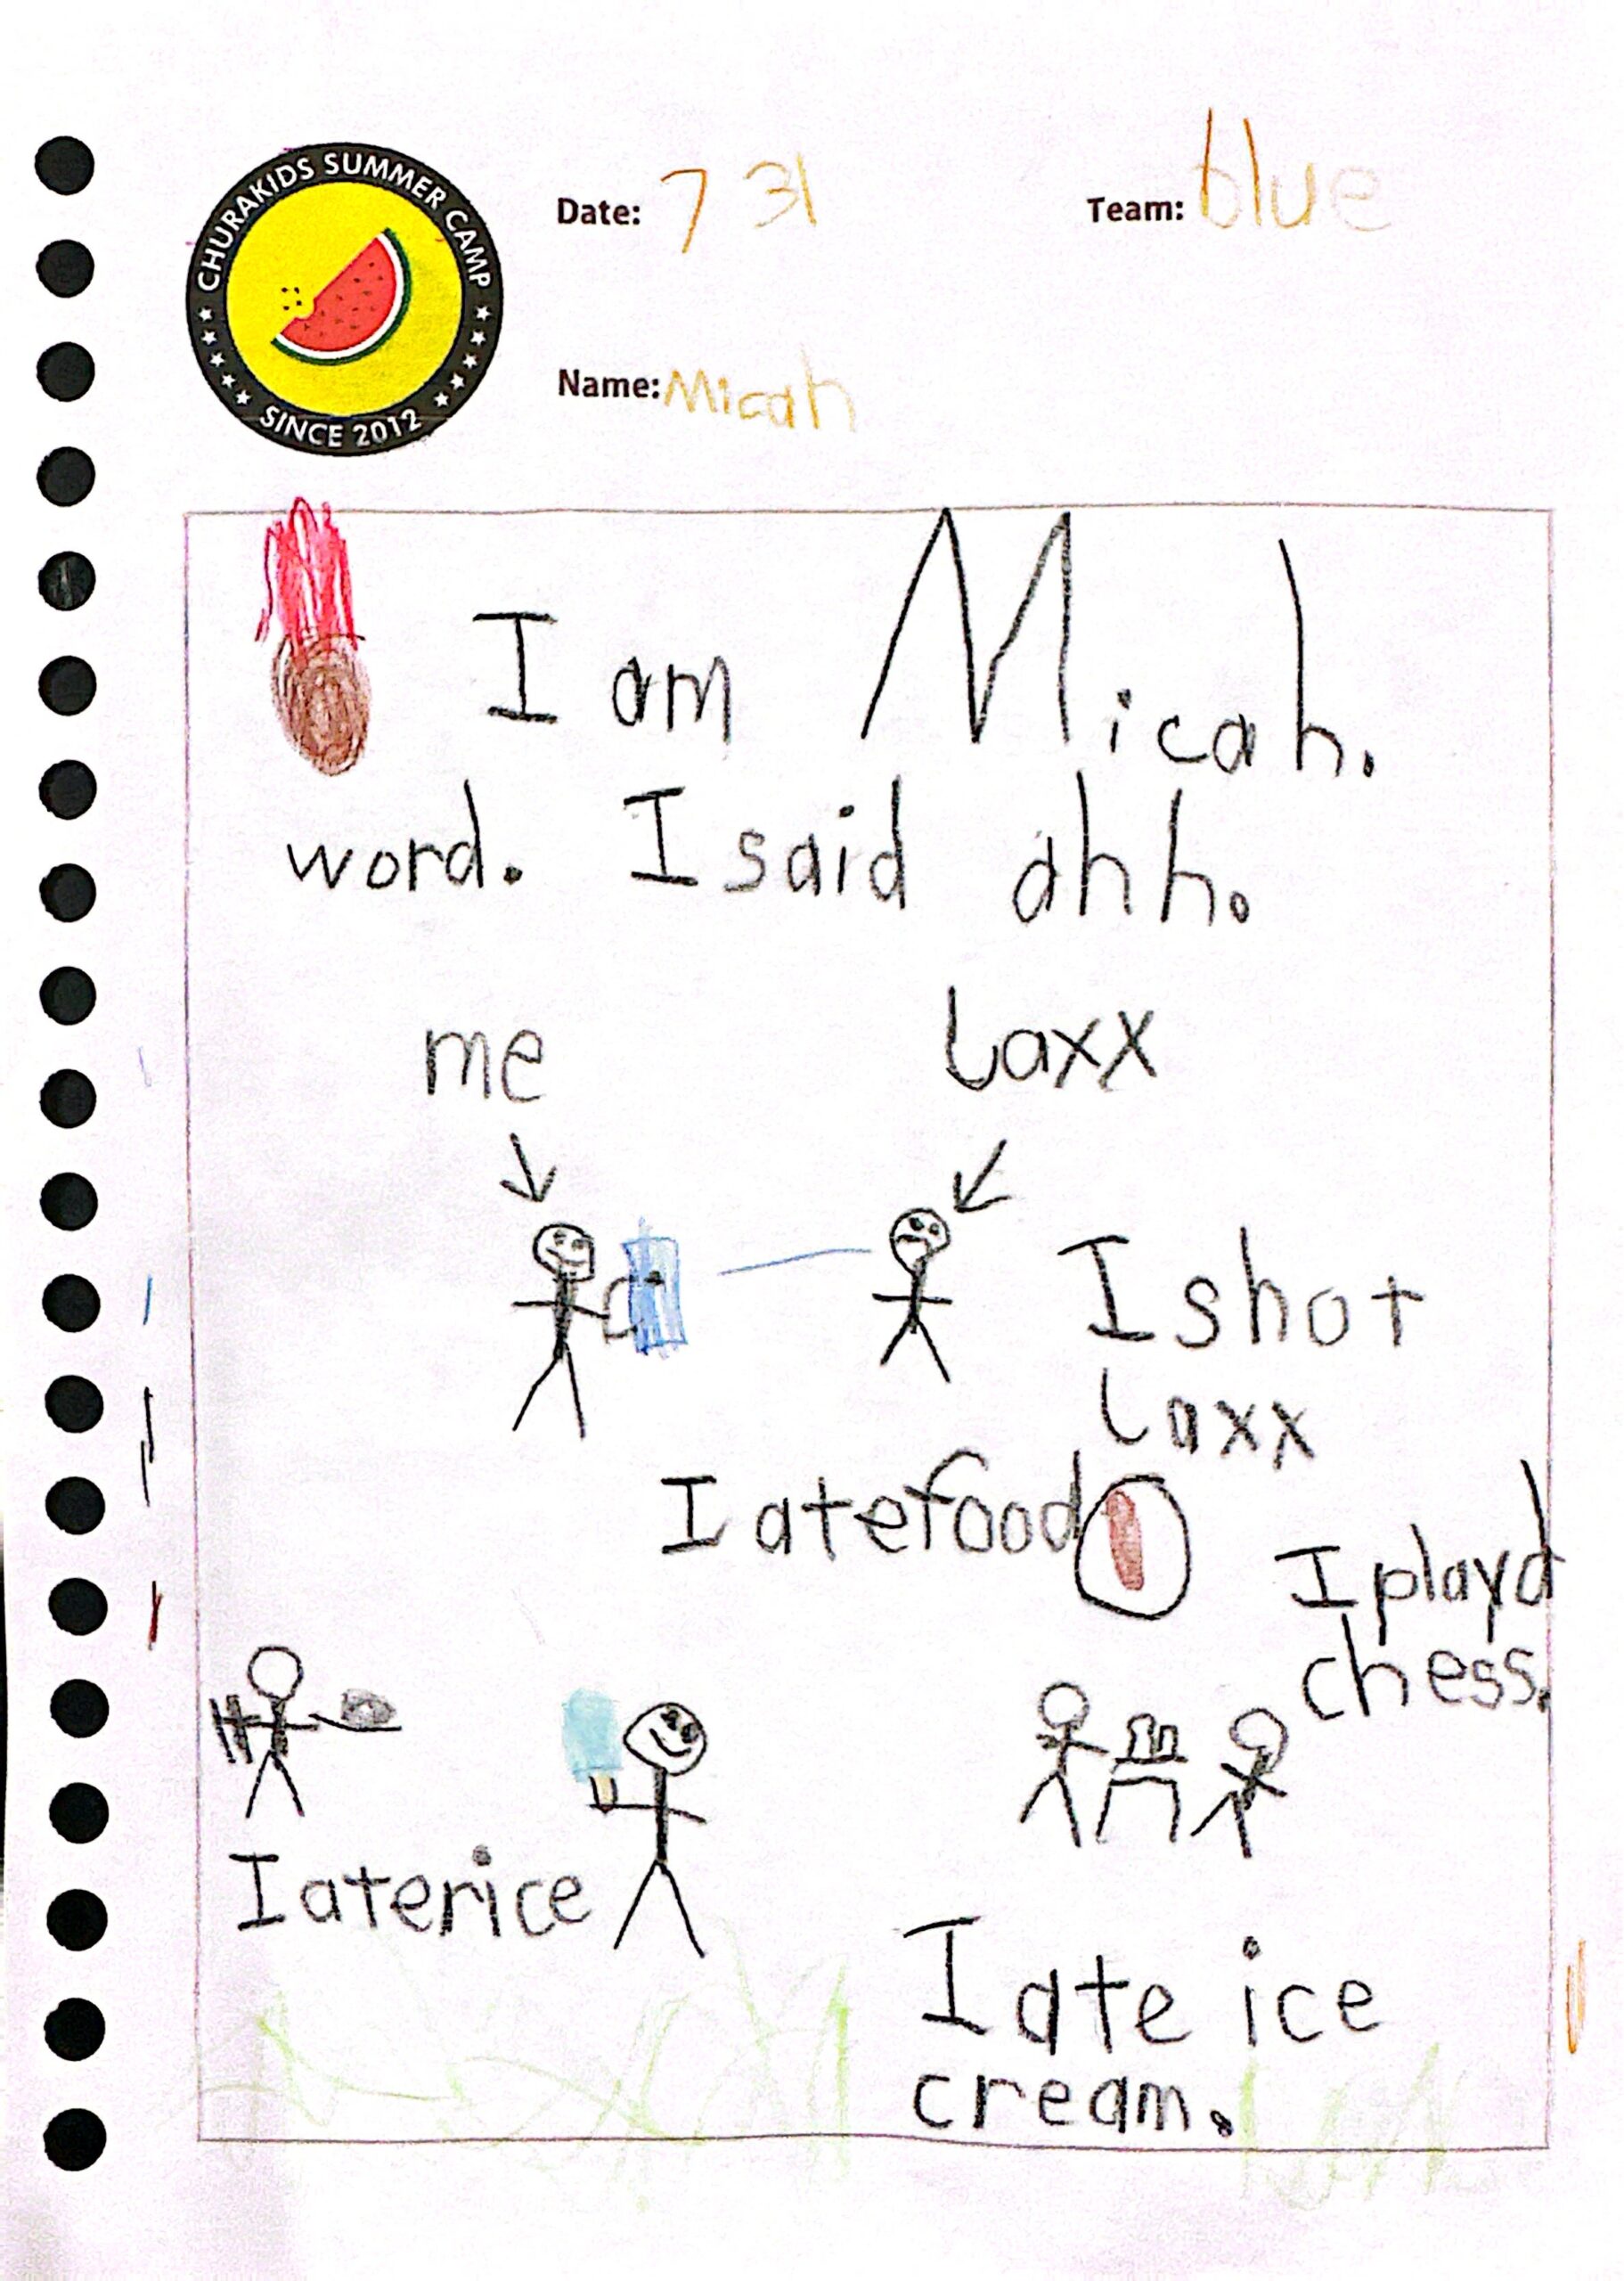 CHURAKIDS SUMMER CAMP
SINCE 2012
Date: 7 31
Team: blue
Name: Micah
I am Micah.
word. I said ahh.
me
Laxx
I shot
Laxx
I ate food
I playd
chess.
I ate rice
I ate ice
cream.